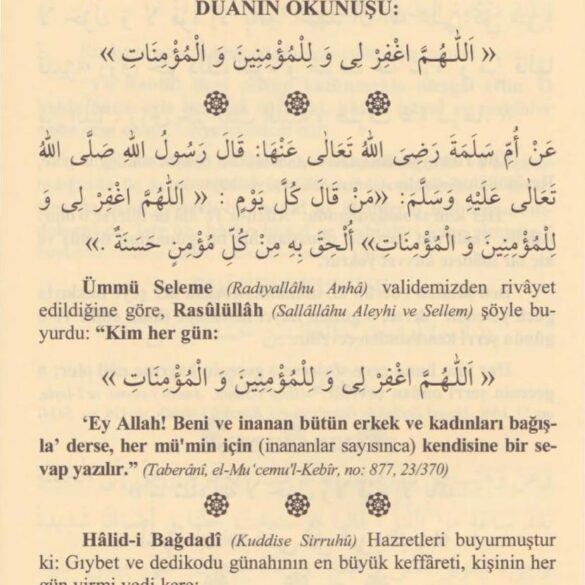 DUANIN OKUNUŞU:
« اَللّٰهُمَّ اغْفِرْ لِى وَ لِلْمُؤْمِنِينَ وَ الْمُؤْمِنَاتِ »
عَنْ أُمِّ سَلَمَةَ رَضِىَ اللهُ تَعَالٰى عَنْهَا: قَالَ رَسُولُ اللهِ صَلَّى اللهُ
تَعَالٰى عَلَيْهِ وَسَلَّمَ: «مَنْ قَالَ كُلَّ يَوْمٍ : « اَللّٰهُمَّ اغْفِرْ لِى وَ
لِلْمُؤْمِنِينَ وَ الْمُؤْمِنَاتِ» أُلْحِقَ بِهِ مِنْ كُلِّ مُؤْمِنٍ حَسَنَةٌ .»
Ümmü Seleme (Radıyallâhu Anhâ) validemizden rivâyet
edildiğine göre, Rasûlüllâh (Sallâllâhu Aleyhi ve Sellem) şöyle bu-
yurdu: “Kim her gün:
« اَللّٰهُمَّ اغْفِرْ لِى وَ لِلْمُؤْمِنِينَ وَ الْمُؤْمِنَاتِ »
‘Ey Allah! Beni ve inanan bütün erkek ve kadınları bağış-
la’ derse, her mü'min için (inananlar sayısınca) kendisine bir se-
vap yazılır.” (Taberânî, el-Mu‘cemu'l-Kebîr, no: 877, 23/370)
Hâlid-i Bağdadî (Kuddise Sirruhû) Hazretleri buyurmuştur
ki: Gıybet ve dedikodu günahının en büyük keffâreti, kişinin her
gün yirmi yedi kere: